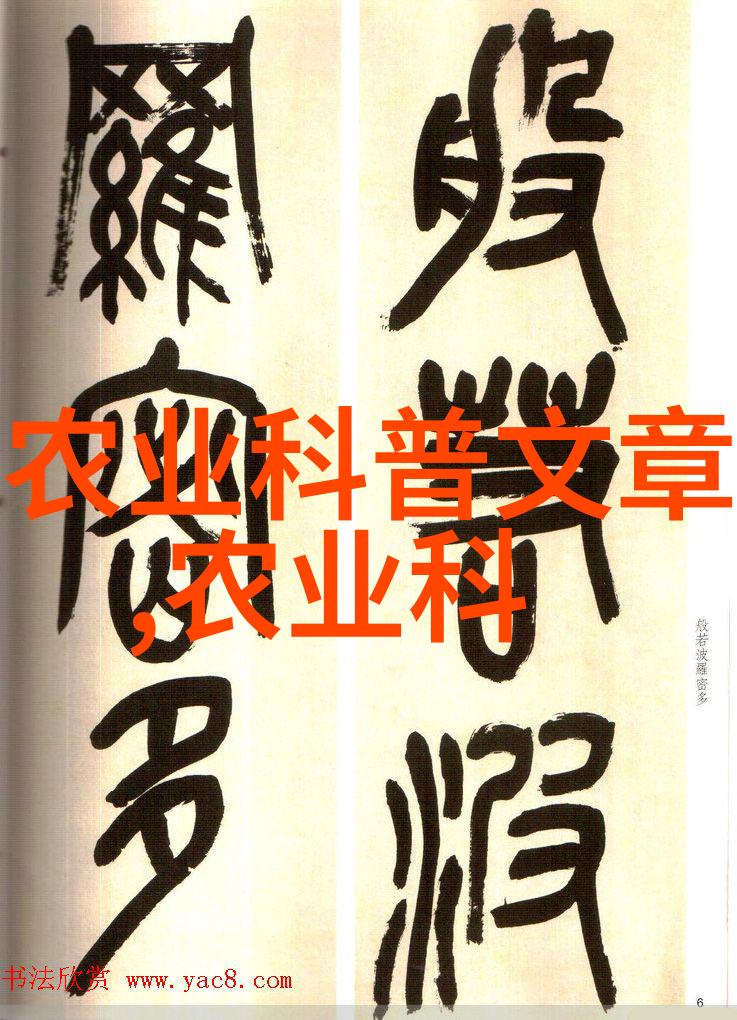 般若波
羅密多
农业科普文章
,农业科
般若波羅密多
书法欣赏 www.yac8.com
6